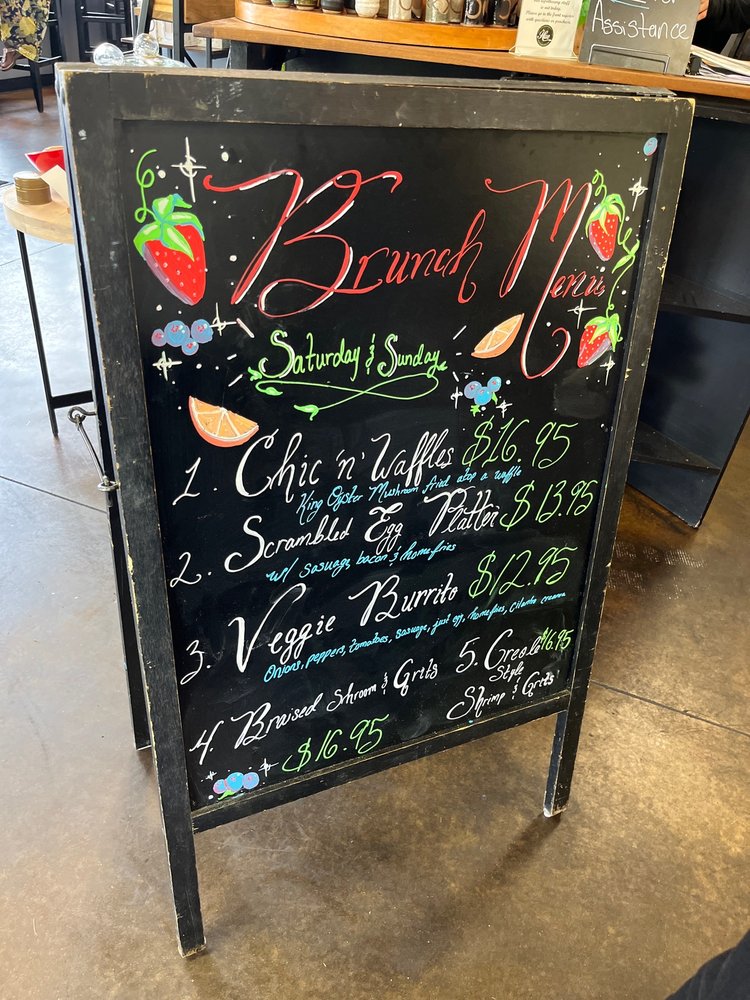 Assistance
Brunch Menu
Saturday & Sunday
1. Chic 'n' Waffles $16.95
King Oyster Mushroom fried atop a waffle
2. Scrambled Egg Platter $13.95
w/ Sasuage, bacon & homefries
3. Veggie Burrito $12.95
Onions, peppers, tomatoes, sasuage, just egg, homefries, Cilantro creama
4. Braised Shroom & Grits
$16.95
5. Creole $16.95
Style
Shrimp & Grits